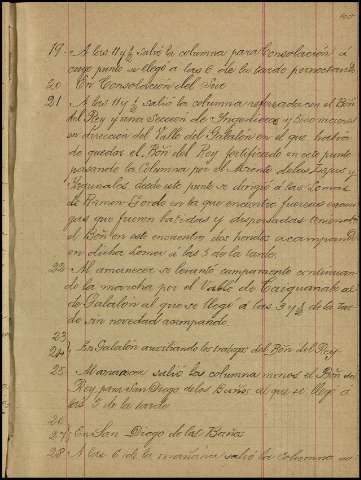 19 A las 11 y ½ salió la columna para Consolación á
cuyo punto se llegó á las 6 de la tarde pernoctando
20 En Consolación del Sur
21 A las 11 y ½ salió la columna reforzada con el Bón
del Rey y una Sección de Ingenieros y dió
en dirección del Valle del Galalón en el que había
de quedar el Bón del Rey fortificado en este punto
pasando la Columna por el Monte de las
desde este punto se dirigió á las Lomas
de Ramon Gordo en la que encontro fuerzas enemi
gas que fueron batidas y dispersadas teniendo
el Bón en este encuentro dos heridos acampando
en dichas Lomas á las 5 de la tarde.
22 Al amanecer se levantó campamento continuan
do la marcha por el Valle de Caiguanabo al
de Galalón al que se llegó á las 3 y ½ de la tar
de sin novedad acampando.
23
24 En Galalón auxiliando los trabajos del Bón del Rey.
25 Al amanecer salió la columna menos el Bón del
Rey para San Diego de los Baños al que se llegó á
las 5 de la tarde
26
27 En San Diego de los Baños
28 A las 6 de la mañana salió la columna